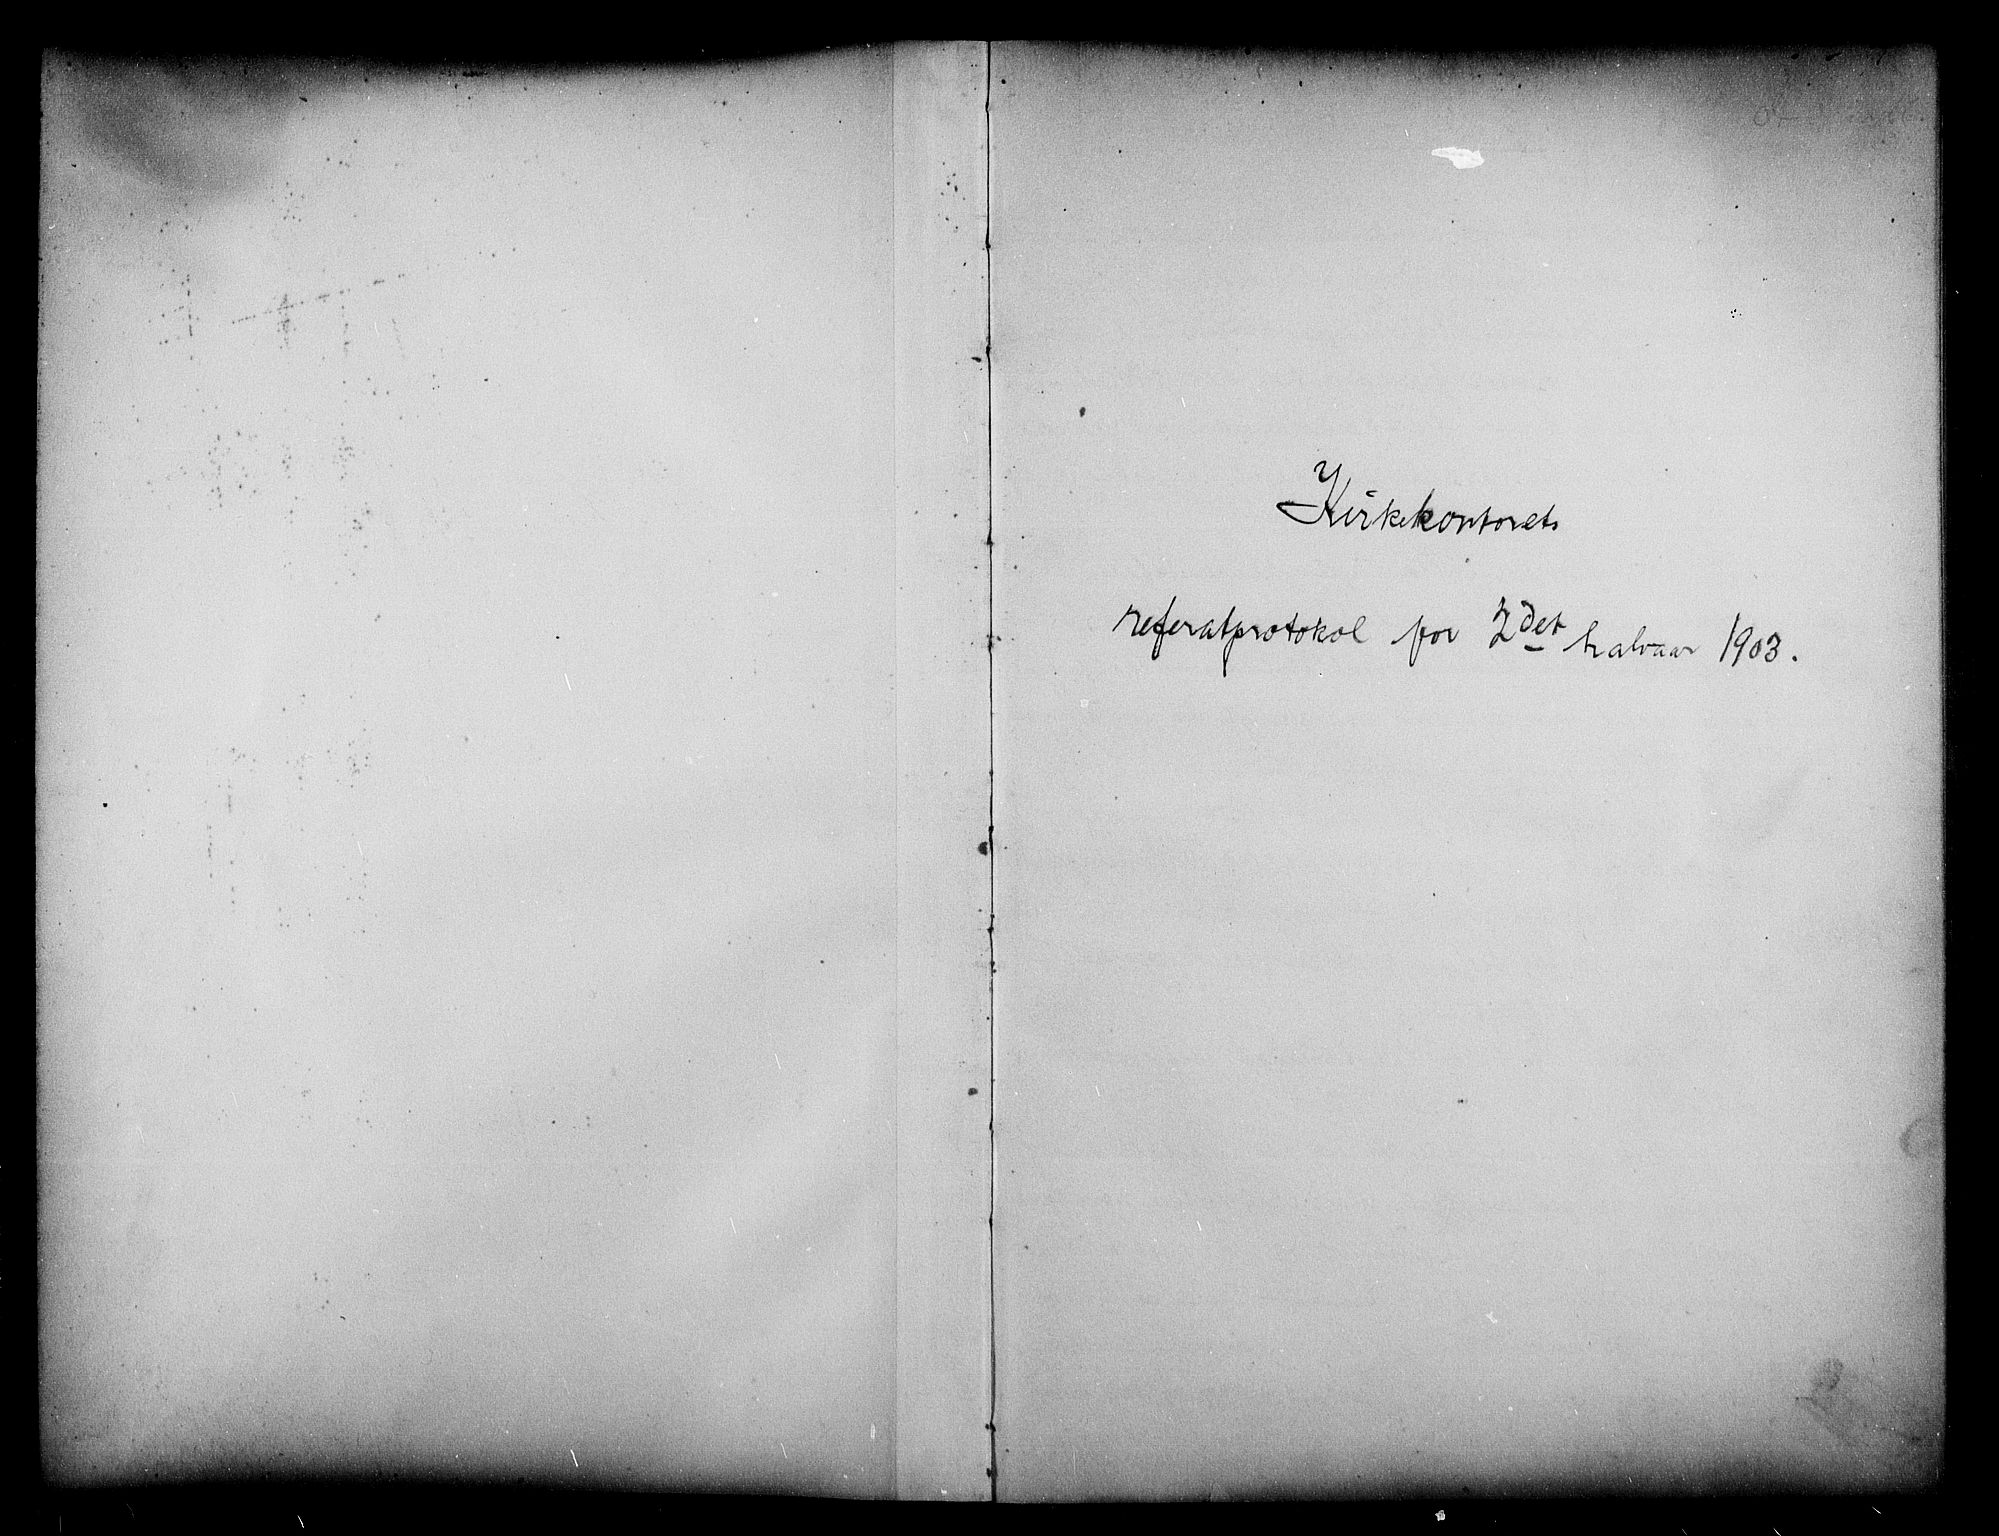 Kirkekontorets
referatprotokol for 2det halvaar 1903.